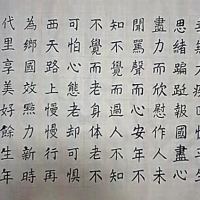 思緒蹁跹報國盡心
盡心力而欣慰作人未
聞罵聲而心安年不
知不覺而過人不知
不覺而老身体老不
可怕心態老卻可惧
西天路上慢慢行再
為鄉國效點力新時
代里享美好餘生年